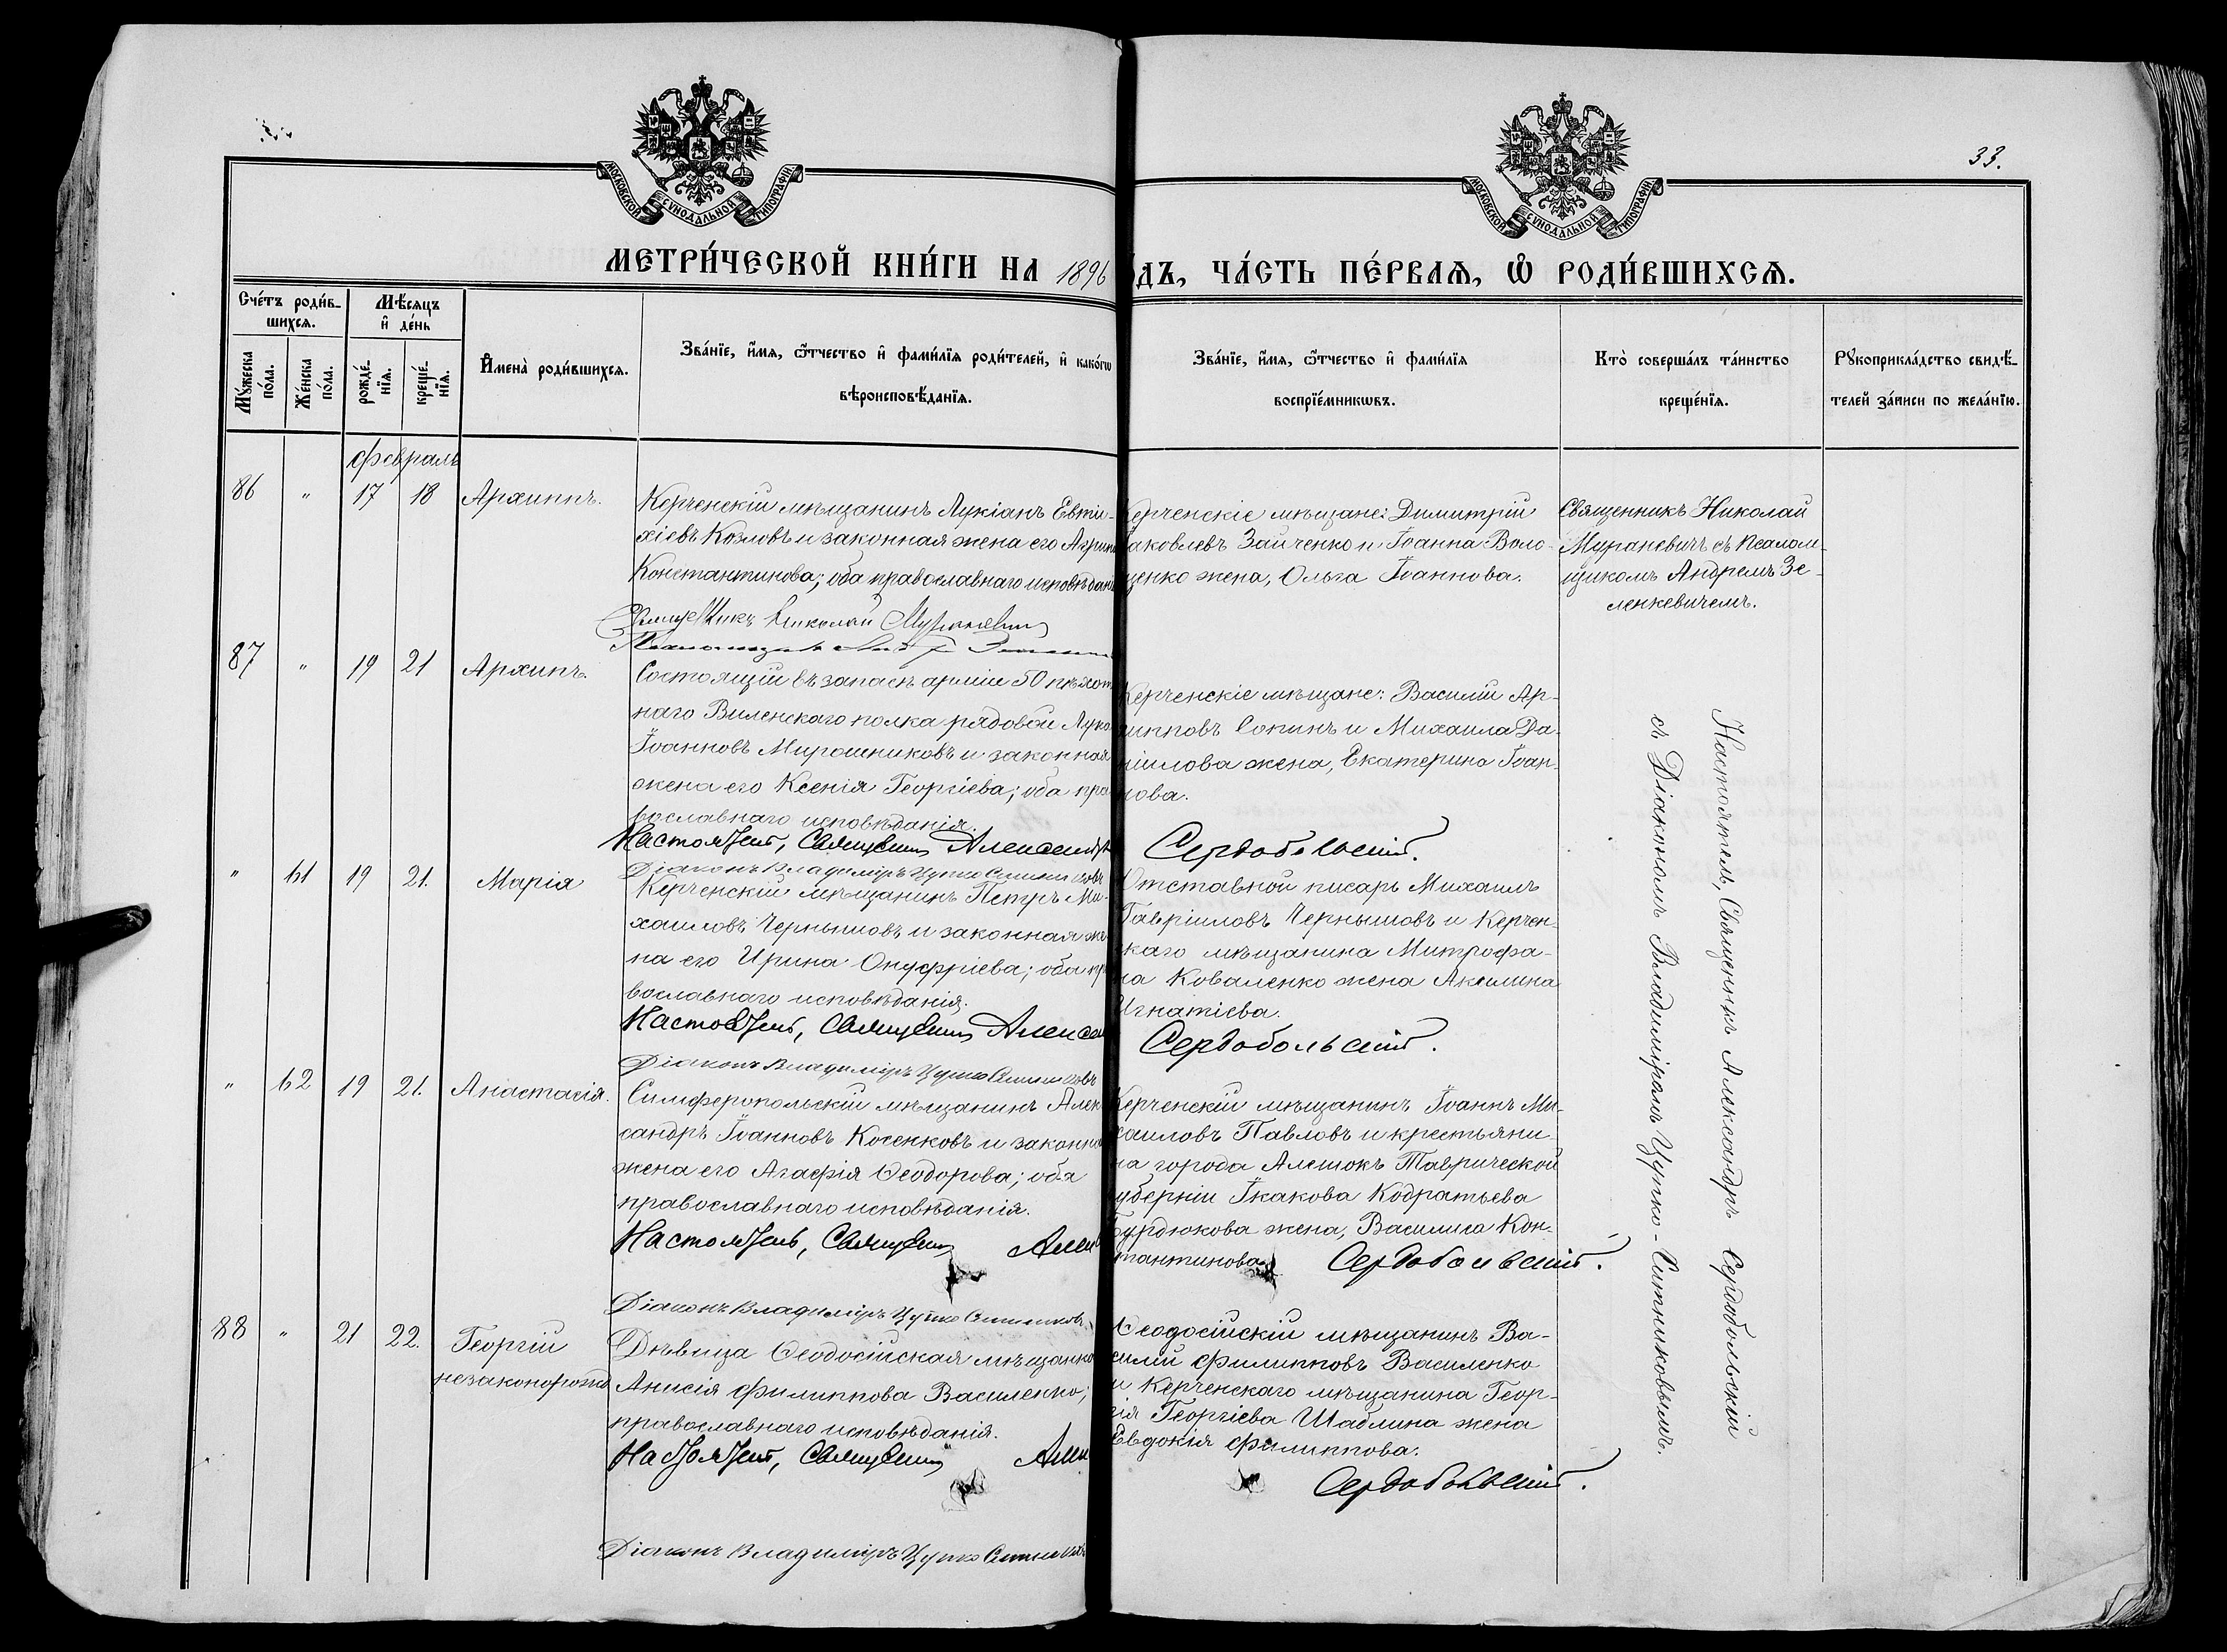 33.
МОСКОВСКОЙ СѴНОДАЛЬНОЙ ТИПОГРАФІИ
МОСКОВСКОЙ СѴНОДАЛЬНОЙ ТИПОГРАФІИ
МЕТРИ́ЧЕСКОЙ КНИ́ГИ НА 1896
ДЪ, ЧА́СТЬ ПЕ́РВАѦ, Ѡ҆ РОДИ́ВШИХСѦ.
Сче́тъ роди́в-
шихсѧ.
Мꙋ́жеска по́ла.
Же́нска по́ла.
Мѣ́сѧцъ
и҆ де́нь
рожде́-
нїѧ.
креще́-
нїѧ.
И҆мена̀ роди́вшихсѧ.
Зва́нїе, и҆́мѧ, ѻ҆́тчество и҆ фами́лїѧ роди́телей, и҆ како́гѡ
вѣроисповѣ́данїѧ.
Зва́нїе, и҆́мѧ, ѻ҆́тчество и҆ фами́лїѧ
воспрїе́мникѡвъ.
Кто̀ соверша́лъ та́инство
креще́нїѧ.
Рꙋкоприкла́дство свидѣ́-
телей за́писи по жела́нїю.
Февраль
86 " 17 18 Архиппъ.
Керченскій мѣщанинъ Лукіанъ Евти-
хіевъ Козловъ и законная жена его Агрип
Константинова; оба православнаго исповѣдані
Священникъ Николай Мураневич
Керченскіе мѣщане: Димитрій
аковлевъ Зайченко и Іоанна Воло-
щенко жена, Ольга Іоаннова.
Священникъ Николай
Мураневичъ съ псалом-
щикомъ Андреемъ Зе-
ленкевичемъ.
87 " 19 21 Архипъ.
Состоящій въ запасѣ арміи 50 пѣхот
наго Виленскаго полка рядовой Лука
Іоанновъ Мирошниковъ и законная
жена его Ксенія Георгіева; оба пра
вославнаго исповѣданія.
Настоятель, Священникъ Александръ
Діаконъ Владиміръ Цупко Ситниковъ
Керченскіе мѣщане: Василій Ар-
хипповъ Сопинъ и Михаила Да-
ніилова жена, Екатерина Іоан-
нова.
Сердобольскій.
" 61 19 21. Марія
Керченскій мѣщанинъ Петръ Ми-
хаиловъ Чернышовъ и законная же
на его Ирина Онуфріева; оба пр
вославнаго исповѣданія.
Настоятель, Священникъ Алекса
Діаконъ Владиміръ Цупко Ситниковъ
Отставной писарь Михаилъ
Гавріиловъ Чернышовъ и Керчен-
каго мѣщанина Митрофа-
на Коваленко жена Акилина
Игнатіева.
Сердобольскій.
" 62 19 21. Анастасія.
Симферопольскій мѣщанинъ Алек
сандръ Іоанновъ Косенковъ и законна
жена его Агафія Ѳеодорова; оба
православнаго исповѣданія.
Настоятель, Священникъ Алек
Діаконъ Владиміръ Цупко Ситниковъ
Керченскій мѣщанинъ Іоаннъ Ми-
хаиловъ Павловъ и крестьяни-
на города Алешокъ Таврической
уберніи Іакова Кодратьева
Бурдюкова жена, Василиса Кон-
тантинова
Сердобольскій.
88 " 21 22. Георгій
незаконорожд
Дѣвица Ѳеодосійская мѣщанка
Анисія Филиппова Василенко;
православнаго исповѣданія.
Настоятель, Священникъ Алек
Діаконъ Владиміръ Цупко Ситниковъ
Ѳеодосійскій мѣщанинъ Ва-
силій Филипповъ Василенко
и Керченскаго мѣщанина Геор-
гія Георгіева Шаблина жена
Евдокія Филиппова.
Сердобольскій.
Настоятель, Священникъ Александръ Сердобольскій
съ Діакономъ Владиміромъ Цупко-Ситниковымъ.